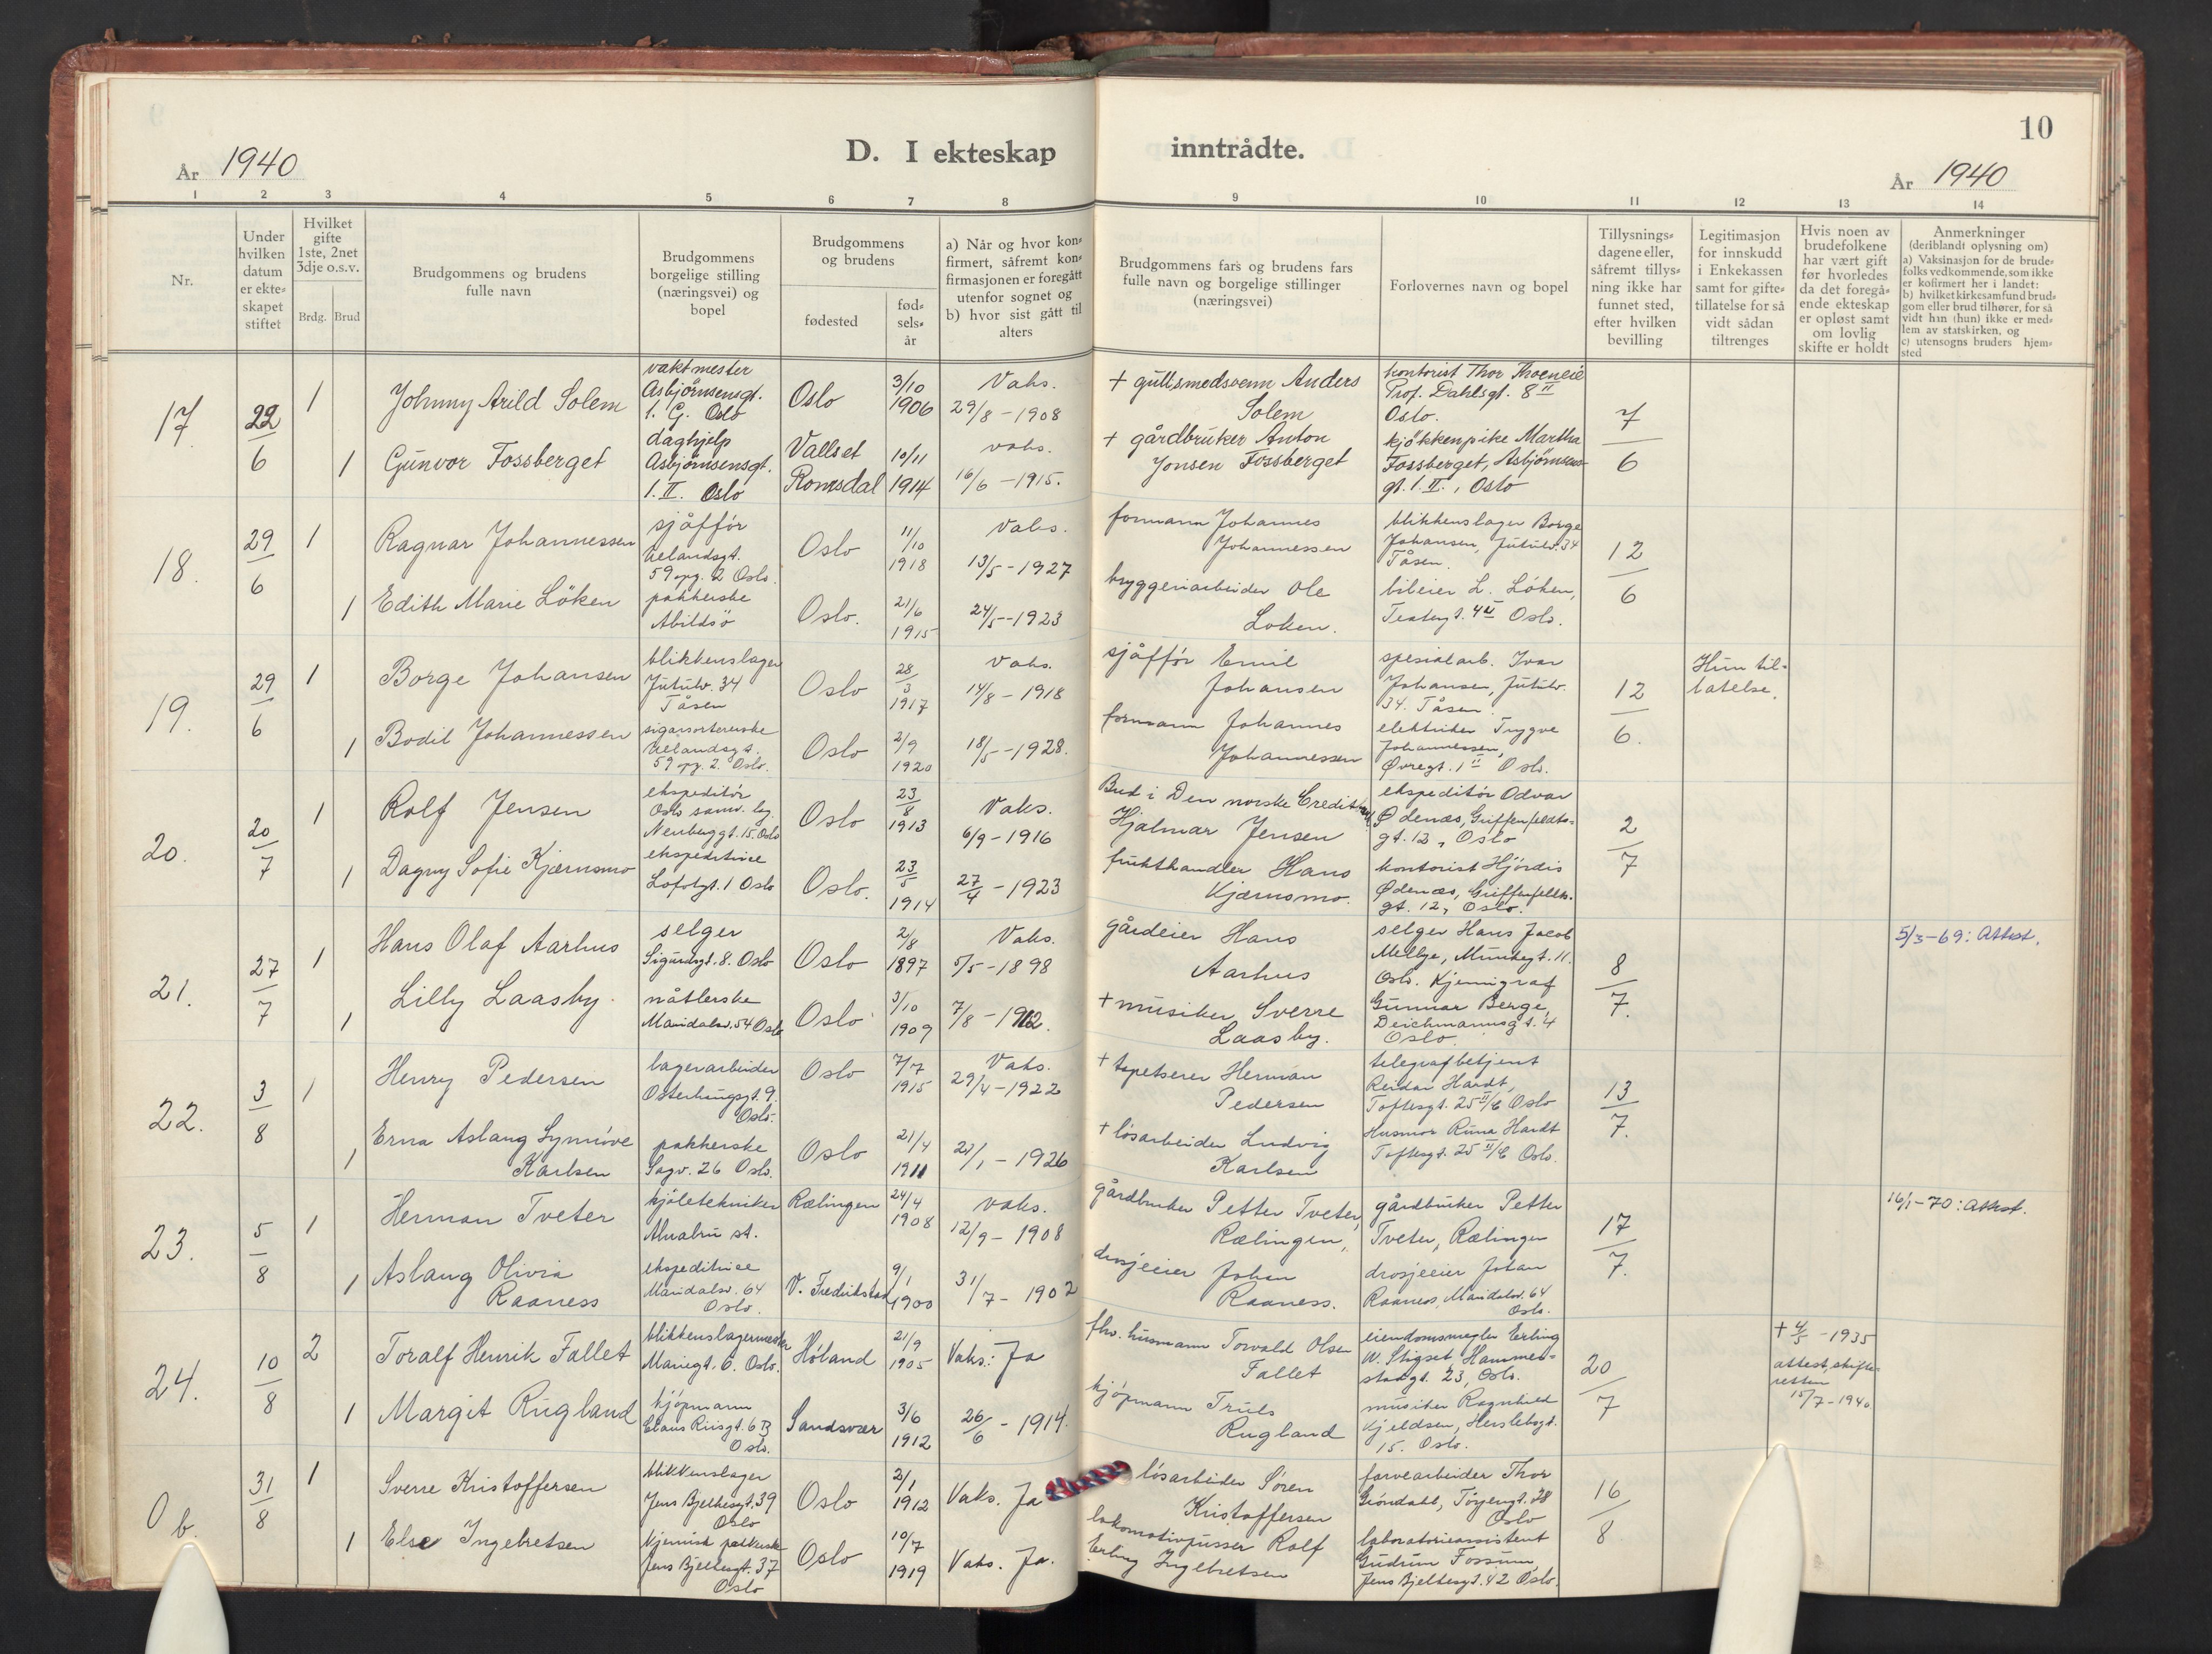 10
D. I ekteskap inntrådte.
År 1940
År 1940
1 2 3 4 5 6 7 8 9 10 11 12 13 14
Nr.
Under
hvilken
datum
er ekte-
skapet
stiftet
Hvilket
gifte
1ste, 2net
3dje o.s.v.
Brdg. Brud
Brudgommens og brudens
fulle navn
Brudgommens
borgelige stilling
(næringsvei) og
bopel
Brudgommens
og brudens
fødested
fød-
sels-
år
a) Når og hvor kon-
firmert, såfremt kon-
firmasjonen er foregått
utenfor sognet og
b) hvor sist gått til
alters
Brudgommens fars og brudens fars
fulle navn og borgelige stillinger
(næringsvei)
Forlovernes navn og bopel
Tillysnings-
dagene eller,
såfremt tillys-
ning ikke har
funnet sted,
efter hvilken
bevilling
Legitimasjon
for innskudd
i Enkekassen
samt for gifte-
tillatelse for så
vidt sådan
tiltrenges
Hvis noen av
brudefolkene
har vært gift
før hvorledes
da det foregå-
ende ekteskap
er opløst samt
om lovlig
skifte er holdt
Anmerkninger
(deriblandt oplysning om)
a) Vaksinasjon for de brude-
folks vedkommende, som ikke
er kofirmert her i landet:
b) hvilket kirkesamfund brud-
gom eller brud tilhører, for så
vidt han (hun) ikke er med-
lem av statskirken, og
c) utensogns bruders hjem-
sted
17. 22/6
1 Johnny Arild Solem
vaktmester
Asbjørnsensgt.
1. G. Oslo
Oslo
3/10
1906
Vaks.
29/8 - 1908
+ gullsmedsvenn Anders
Solem
kontorist Thor
Prof. Dahlsgt. 8 II
Oslo.
7/6
1 Gunvor Fossberget
daghjelp
Asbjørnsensgt.
1. II. Oslo
Vallset
Romsdal
10/11
1914
vaks.
16/6 - 1915.
+ gårdbruker Anton
Jonsen Fossberget
kjøkkenpike Martha
Fossberget, Asbjørnsens-
gt. 1. II., Oslo
18. 29/6
1 Ragnar Johannessen
sjåffør
Uelandsgt.
59 opg. 2 Oslo.
Oslo
11/10
1918
Vaks.
13/5 - 1927
formann Johannes
Johannessen
blikkenslager Borge
Johansen, Jutulv. 34
Tåsen.
12/6
1 Edith Marie Löken
pakkerske
Abildsö
Oslo.
21/6
1915
24/5 - 1923
bryggeriarbeider Ole
Loken.
bileier L. Löken,
Teatergt. 4 II Oslo.
19. 29/6
1 Borge Johansen
blikkenslager
Jutulv. 34
Tåsen
Oslo
28/3
1917
Vaks.
14/8 - 1918
sjåffør Emil
Johansen
spesialarb. Ivar
Johansen, Jutulv.
34. Tåsen.
12/6.
Hun til-
latelse.
1 Bodil Johannessen
sigarsortererske
Uelandsgt.
59 opg. 2. Oslo.
Oslo
2/9
1920
18/5 - 1928.
formann Johannes
Johannessen
elektriker Trygve
Johannessen,
Øvregt. 1 II Oslo.
20. 20/7
1 Rolf Jensen
ekspeditör
Oslo samv. lag
Neuberggt. 15. Oslo
Oslo
23/8
1913
Vaks.
6/9 - 1916
Bud i Den norske Creditbank
Hjalmar Jensen
ekspeditør Odvar
Ødenæs, Griffenfeldts-
gt. 12, Oslo
2/7
1 Dagny Sofie Kjærnsmo
ekspeditrice
Lofotgt. 1 Oslo
Oslo.
23/5
1914
27/4 - 1923
frukthandler Hans
Kjærnsmo.
kontorist Hjördis
Ødenæs, Griffenfeldts.
gt. 12, Oslo.
21. 27/7
1 Hans Olaf Aarhus
selger
Sigurdsgt. 8. Oslo
Oslo
2/8
1897
Vaks.
5/5 - 1898
gårdeier Hans
Aarhus
selger Hans Jacob
Mellbye, Munkegt. 11.
Oslo. Kjemigraf
8/7.
5/3-69: Attest.
1 Lilly Laasby.
nåtlerske
Maridalsv. 54 Oslo
Oslo
3/10
1909
7/8 - 1912.
+ musiker Sverre
Laasby.
Gunnar Berge,
Deichmannsgt. 4
Oslo.
22. 3/8
1 Henry Pedersen
lagerarbeider
Österhausgt. 9.
Oslo.
Oslo
7/7
1915
Vaks.
29/4 - 1922
+ tapetserer Herman
Pedersen
telegrafbetjent
Reidar Hardt,
Toftesgt. 25 II/6 Oslo
13/7.
1 Erna Aslaug Synnöve
Karlsen
pakkerske
Sagv. 26 Oslo.
Oslo
21/4
1911
21/1 - 1926
+ lösarbeider Ludvig
Karlsen
Husmor Runa Hardt
Toftesgt. 25 II/6 Oslo.
23. 5/8
1 Herman Tveter
kjøletekniker
Alnabru st.
Rælingen
24/4
1908
vaks.
12/9 - 1908
gårdbruker Petter Tveter,
Rælingen,
gårdbruker Petter
Tveter, Rælingen
17/7.
16/1-70: Attest.
1 Aslaug Olivia
Raaness
ekspeditrise
Maridalsv. 64
Oslo.
V. Fredrikstad
9/1
1900
31/7 - 1902
drosjeeier Johan
Raaness.
drosjeeier Johan
Raaness, Maridalsv. 64
Oslo.
24. 10/8
2 Toralf Henrik Fallet
blikkenslagermester
Mariegt. 6. Oslo.
Höland
21/9
1905
Vaks.: Ja
fhv. husmann Torvald Olsen
Fallet
eiendomsmegler Erling
W. Stigset, Hammer-
stadgt. 23, Oslo.
20/7
+ 4/5 - 1935
attest, skifte-
retten
15/7 - 1940
1 Margit Rugland
kjöpmann
Claus Riisgt. 6 B
Oslo.
Sandsvær
3/6
1912
26/6 - 1914.
kjöpmann Truls
Rugland
musiker Ragnhild
Kjeldsen, Herslebsgt.
15. Oslo.
Ob. 31/8
1 Sverre Kristoffersen
blikkenslager
Jens Bjelkesgt. 39
Oslo
Oslo
2/1
1912
Vaks. Ja
lösarbeider Sören
Kristoffersen
farvearbeider Thor
Gröndahl, Töyengt. 28
Oslo
16/8
1 Else Ingebretsen
kjemisk pakkerske
Jens Bjelkesgt. 37
Oslo
Oslo
10/7
1919
Vaks. Ja.
lokomotivpusser Rolf
Erling Ingebretsen
laboratorieassistent
Gudrun Fossum,
Jens Bjelkesgt. 42 Oslo.